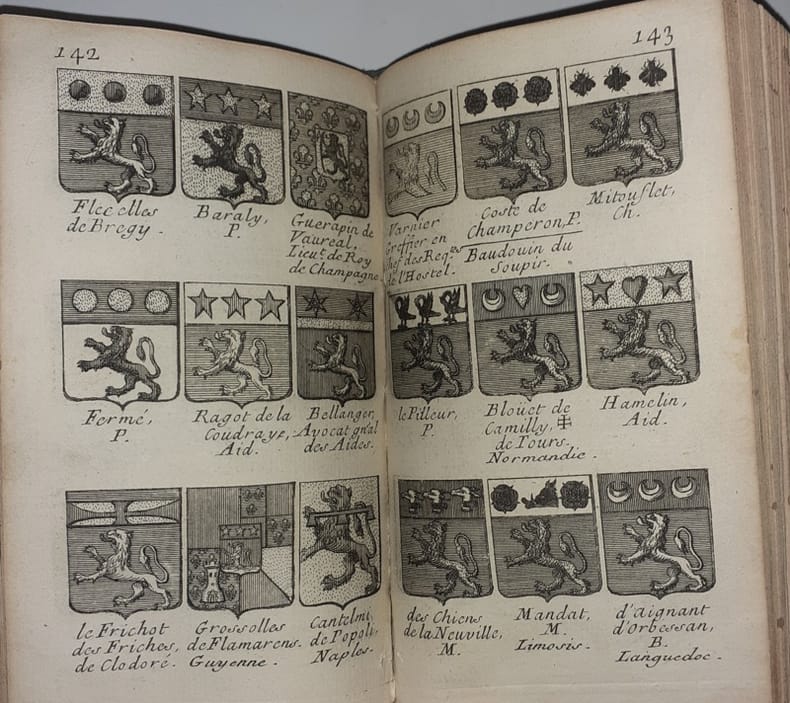 142
Flecelles
de Bregy.
Baraly,
P.
Guerapin de
Vaureal,
Lieut. de Roy
de Champagne
Fermé,
P.
Ragot de la
Coudraye,
Aid.
Bellanger,
Avocat gńal
des Aides.
le Frichot
des Friches,
de Clodoré.
Grossolles
de Flamarens.
Guyenne.
Cantelmi
de Popoli,
Naples.
143
Varnier
Greffier en
chef des Reqes
de l'Hostel.
Coste de
Champeron, P.
Baudouin du
Soupir.
Mitouflet,
Ch.
le Pilleur,
P.
Bloüet de
Camilly,
de Tours.
Normandie.
Hamelin,
Aid.
des Chiens
de la Neuville,
M.
Mandat,
M.
Limosis.
d'aignant
d'Orbessan,
B.
Languedoc.